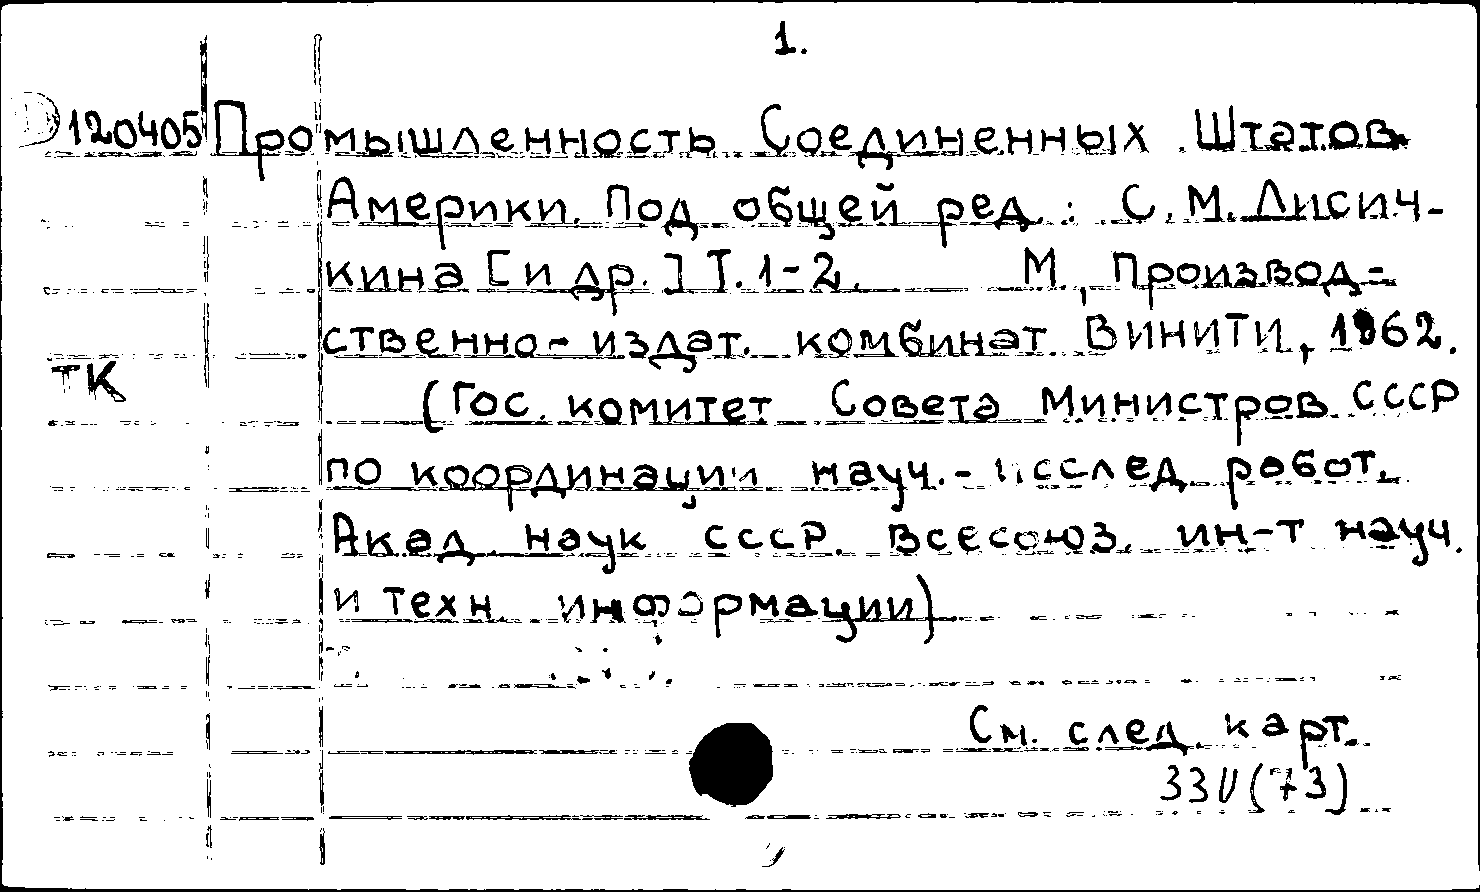 1.
120405 Промышленность Соединенных Штатов
Америки. Под общей ред.: С.М. Лисич-
кина [и др.] Т. 1-2. М., Производ-
ственно-издат. комбинат ВИНИТИ, 1962.
ТК
(Гос. комитет Совета Министров СССР
по координации науч.-исслед. работ.
Акад. наук СССР. Всесоюз. ин-т науч.
и техн. информации)
См. след. карт.
33И(73)